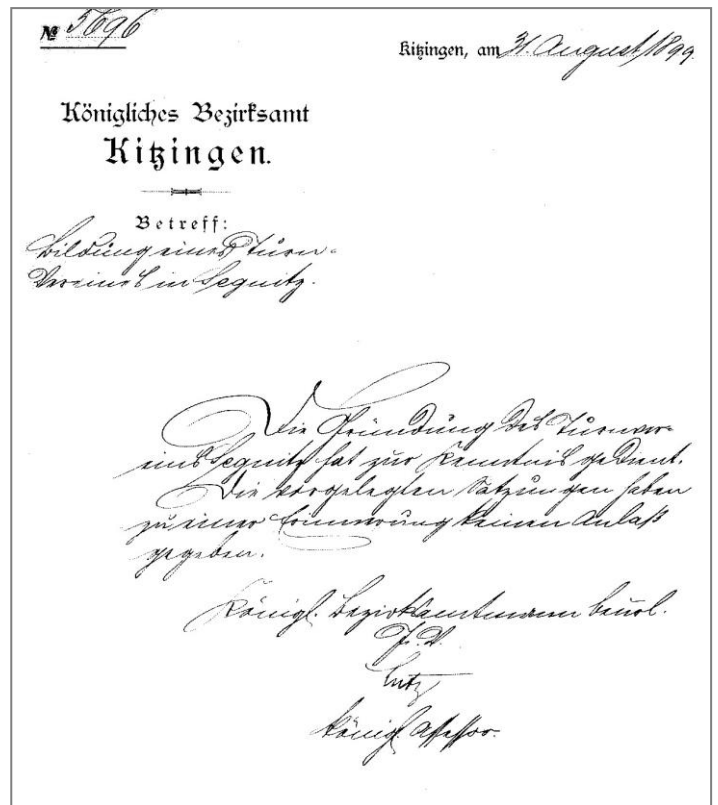 № 5696
Kitzingen, am 31. August 1899.
Königliches Bezirksamt
Kitzingen.
Betreff:
Bildung eines Turn-
Vereines in Segnitz.
Die Gründung des Turnver-
eins Segnitz hat zur Kenntnis gedient.
Die vorgelegten Satzungen haben
zu einer Erinnerung keinen Anlaß
gegeben.
Königl. Bezirksamtmann beurl.
J. V.
Lutz
königl. Assessor.